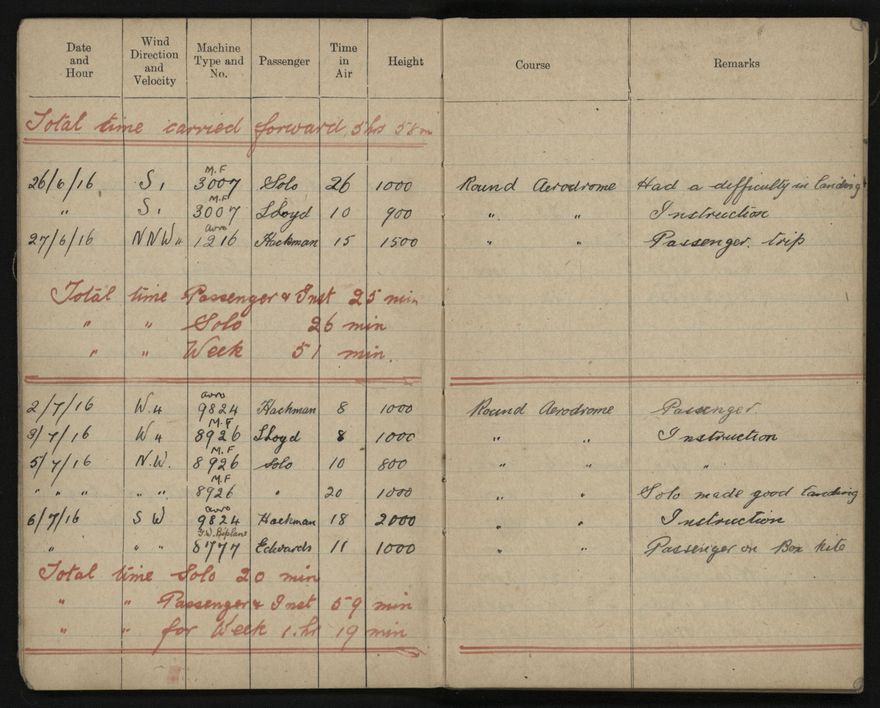 Date and Hour | Wind Direction and Velocity | Machine Type and No. | Passenger | Time in Air | Height | Course | Remarks
Total time carried forward 5 hrs 58 m
M.F
26/6/16 S 1 3007 Solo 26 1000 Round Aerodrome Had a difficulty in landing
M.F
" S 1 3007 Lloyd 10 900 " " Instruction
avro
27/6/16 NNW " 1216 Hackman 15 1500 " " Passenger. trip
Total time Passenger & Inst 25 min
" " Solo 26 min
" " Week 51 min.
avro
2/7/16 W. 4 9824 Hackman 8 1000 Round Aerodrome Passenger.
M.F
3/7/16 W 4 8926 Lloyd 8 1000 " " Instruction
M.F
5/7/16 N.W. 8926 Solo 10 800 " " "
M.F
" " " " " 8926 " 20 1000 " " Solo made good landing
avro
6/7/16 S W 9824 Hackman 18 2000 " " Instruction
Biplane
" " " 8777 Edwards 11 1000 " " Passenger on Box kite
Total time Solo 20 min
" " Passenger & Inst 59 min
" " for Week 1. hr 19 min